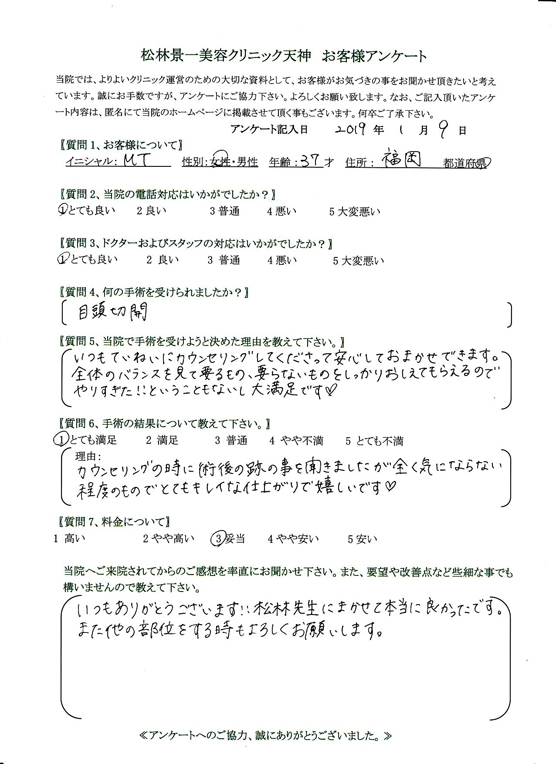 松林景一美容クリニック天神　お客様アンケート
当院では、よりよいクリニック運営のための大切な資料として、お客様がお気づきの事をお聞かせ頂きたいと考え
ています。誠にお手数ですが、アンケートにご協力下さい。よろしくお願い致します。なお、ご記入頂いたアンケ
ート内容は、匿名にて当院のホームページに掲載させて頂く事もございます。何卒ご了承下さい。
アンケート記入日　2019 年 1 月 9 日
【質問 1、お客様について】
イニシャル： MT　性別：女性・男性　年齢：37才　住所：福岡　都道府県
【質問 2、当院の電話対応はいかがでしたか？】
1とても良い　2 良い　3 普通　4 悪い　5 大変悪い
【質問 3、ドクターおよびスタッフの対応はいかがでしたか？】
1とても良い　2 良い　3 普通　4 悪い　5 大変悪い
【質問 4、何の手術を受けられましたか？】
目頭切開
【質問 5、当院で手術を受けようと決めた理由を教えて下さい。】
いつもていねいにカウンセリングしてくださって安心しておまかせできます。
全体のバランスを見て要るもの、要らないものをしっかりおしえてもらえるので
やりすぎた!!ということもないし大満足です♡
【質問 6、手術の結果について教えて下さい。】
1とても満足　2 満足　3 普通　4 やや不満　5 とても不満
理由：
カウンセリングの時に術後の跡の事を聞きましたが全く気にならない
程度のものでとてもキレイな仕上がりで嬉しいです♡
【質問 7、料金について】
1 高い　2 やや高い　3妥当　4 やや安い　5 安い
当院へご来院されてからのご感想を率直にお聞かせ下さい。また、要望や改善点など些細な事でも
構いませんので教えて下さい。
いつもありがとうございます!!松林先生にまかせて本当に良かったです。
また他の部位をする時もよろしくお願いします。
≪アンケートへのご協力、誠にありがとうございました。≫